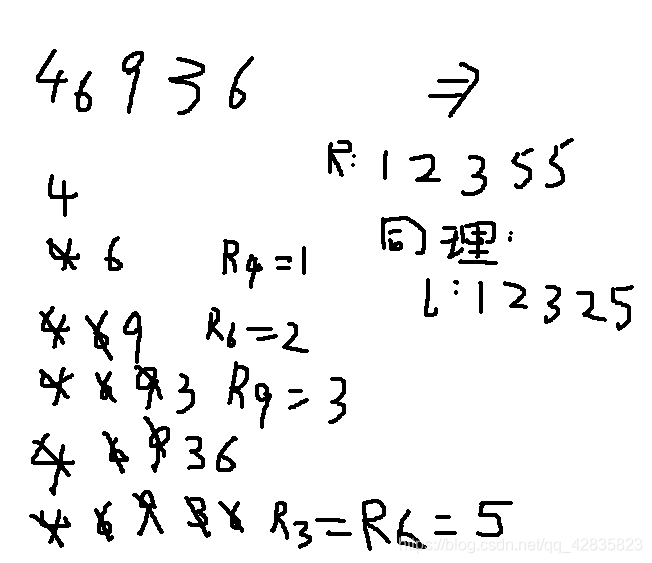 4 6 9 3 6 ⇒
R: 1 2 3 5 5
4
同理:
4 6 R4 = 1
L: 1 2 3 2 5
4 6 9 R6 = 2
4 6 9 3 R9 = 3
4 6 9 3 6
4 6 9 3 6 R3 = R6 = 5
https://blog.csdn.net/qq_42835823